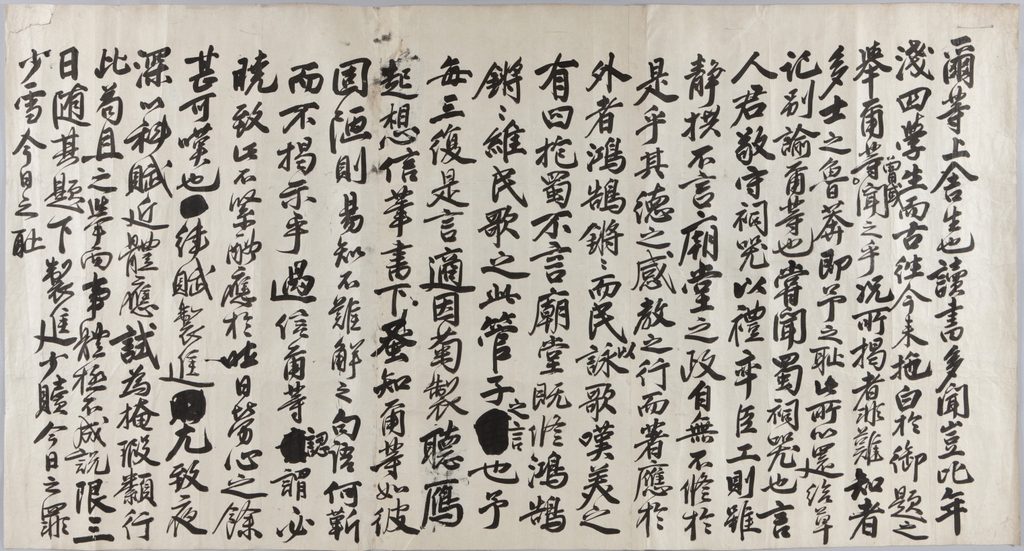 爾等上舍生也讀書多聞豈比年
淺四學生而古往今來拖白於御題之
擧爾等曾或聞之乎況所揭者非難知者
多士之魯莽卽予之恥此所以還給草
記別諭爾等也嘗聞蜀祠咒也言
人君敬守祠咒以禮率臣工則雖
靜拱不言廟堂之政自無不修於
是乎其德之感敎之行而著應於
外者鴻鵠鏘〻而民詠以歌嘆美之
有曰抱蜀不言廟堂旣修鴻鵠
鏘〻維民歌之此管子之言也予
每三復是言適因菊製聽鴈
起想信筆書下蚤知爾等如彼
固陋則易知不難解之句語何靳
而不揭示乎過信爾等認謂必
曉致此不緊酬應於吐日勞心之餘
甚可嘆也 徒賦製進 尤致夜
深以科賦近體應試爲掩瑕纇行
此苟且之擧而事體極不成說限三
日隨其題下製進少贖今日之罪
少雪今日之恥